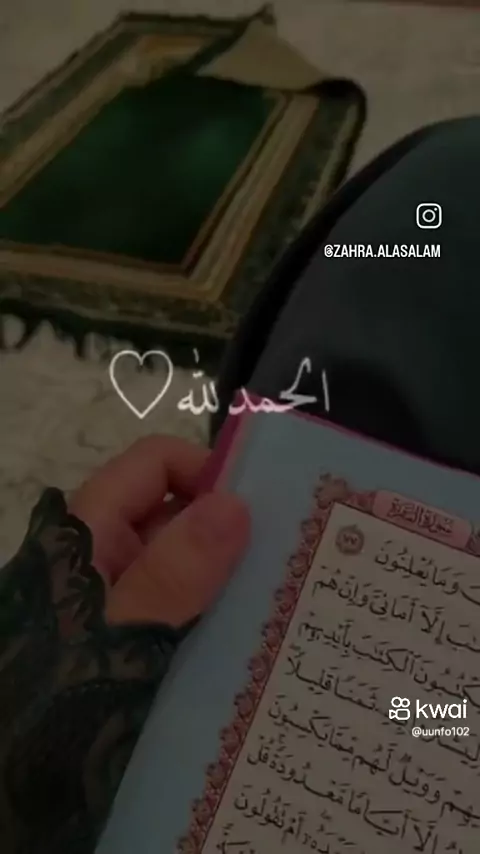 @ZAHRA.ALASALAM
الحمدلله♡
سُورَةُ البَقَرَةِ
وَمَا يُعْلِنُونَ ٧٧
إِلَّآ أَمَانِىَّ وَإِنْ هُمْ
ٱلْكِتَٰبَ بِأَيْدِيهِمْ
ثَمَنًا قَلِيلًا
وَوَيْلٌ لَّهُم مِّمَّا يَكْسِبُونَ
إِلَّآ أَيَّامًا مَّعْدُودَةً قُلْ
أَمْ تَقُولُونَ
kwai
@uunfo102